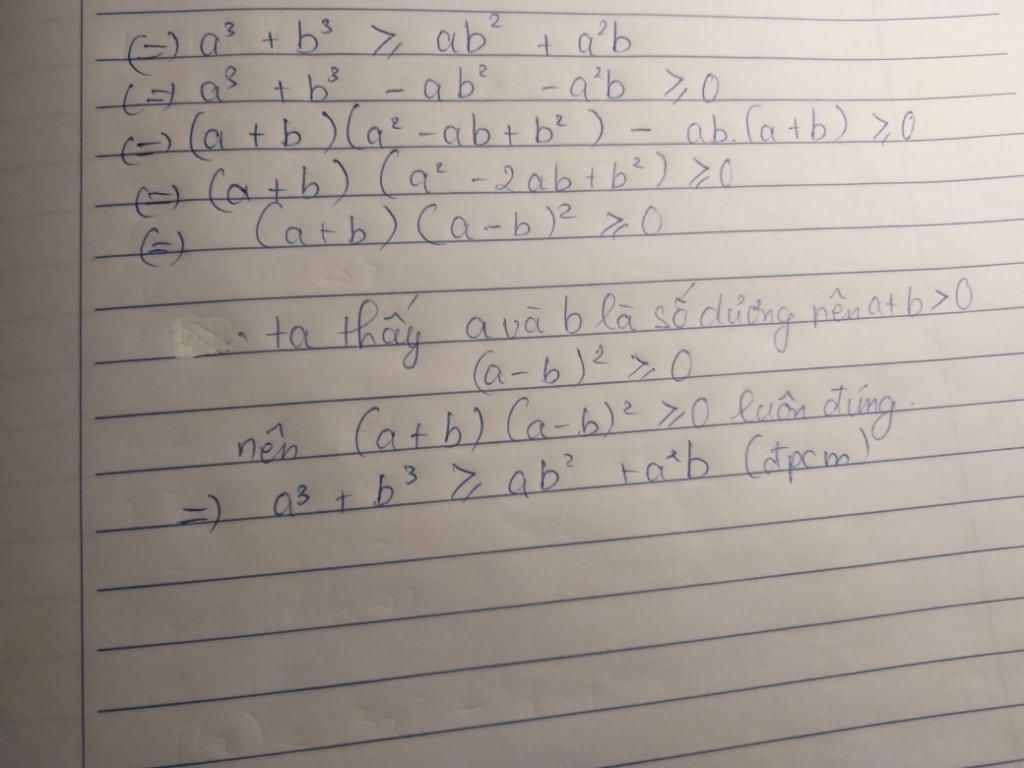 (=) a³ + b³ ⩾ ab² + a²b
(=) a³ + b³ - ab² - a²b ⩾ 0
(=) (a + b)(a² - ab + b²) - ab.(a+b) ⩾ 0
(=) (a + b) (a² - 2ab + b²) ⩾ 0
(=) (a+b) (a-b)² ⩾ 0
ta thấy a và b là số dương nên a+b > 0
(a-b)² ⩾ 0
nên (a+b) (a-b)² ⩾ 0 luôn đúng.
=) a³ + b³ ⩾ ab² + a²b (đpcm)